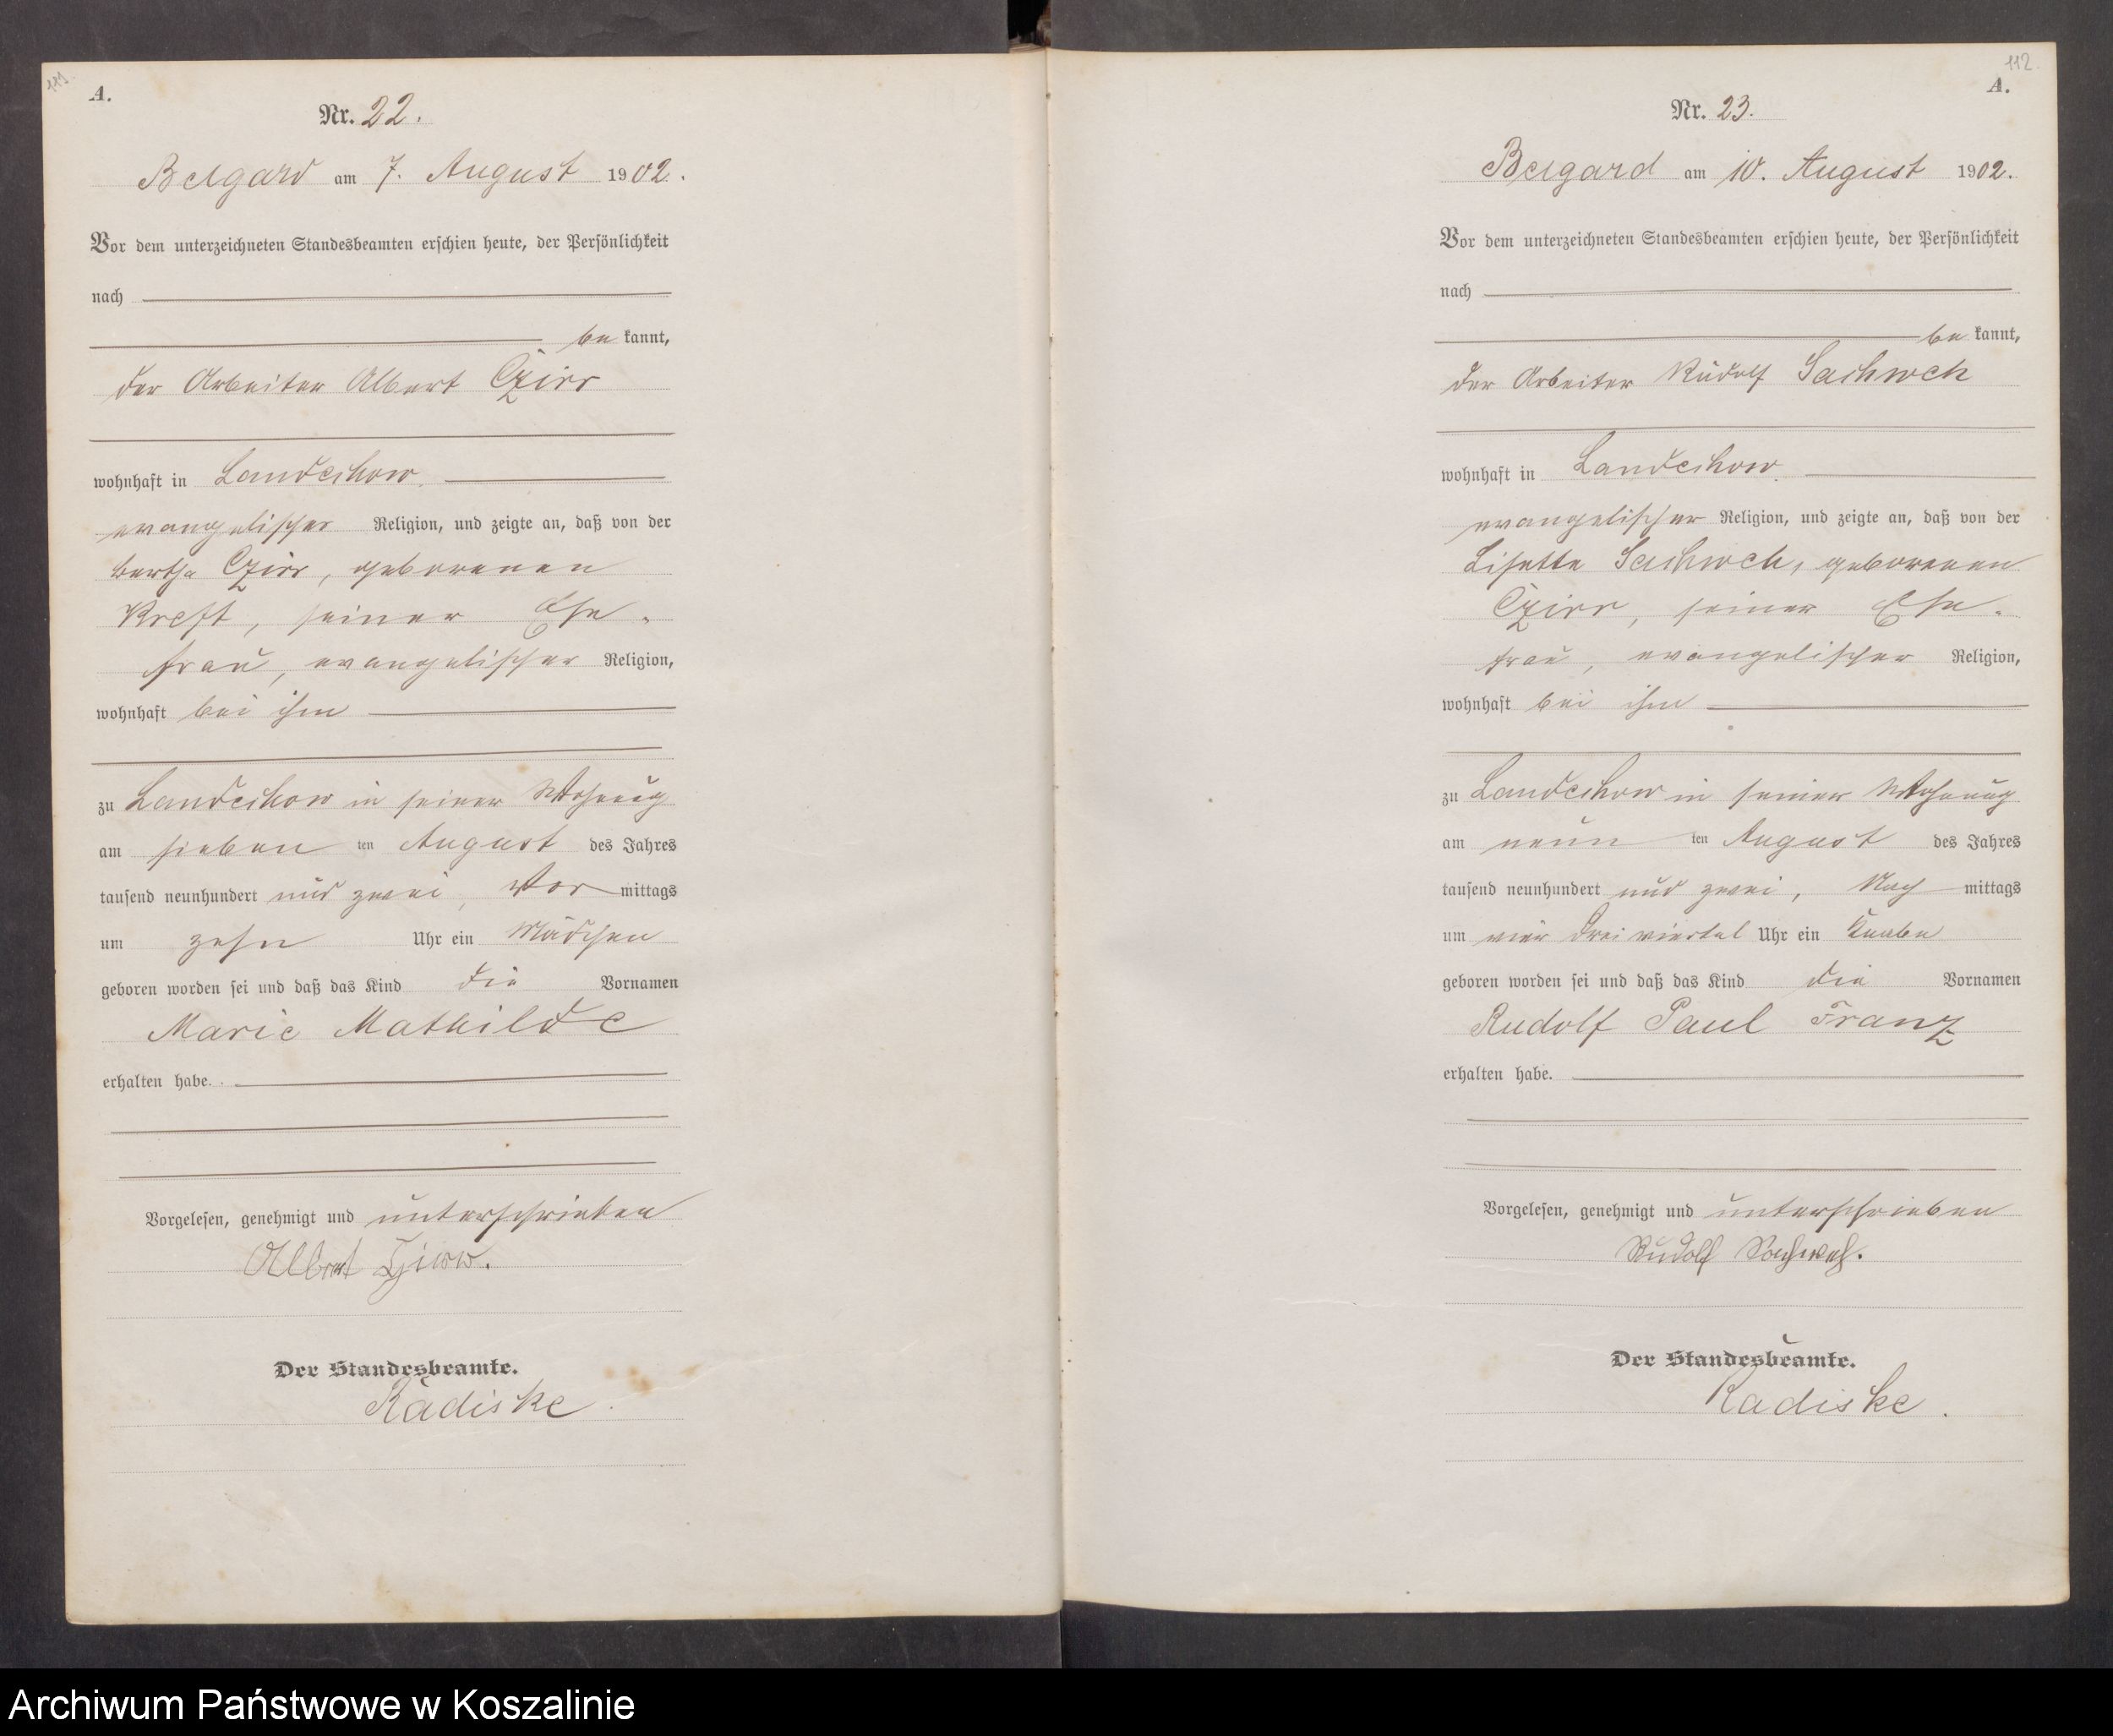 A.
Nr. 22.
Belgard am 7. August 1902.
Vor dem unterzeichneten Standesbeamten erschien heute, der Persönlichkeit
nach
be kannt,
der Arbeiter Albert Czirr
wohnhaft in Landechow.
evangelischer Religion, und zeigte an, daß von der
Bertha Czirr, geborenen
Kreft, seiner Ehe-
frau, evangelischer Religion,
wohnhaft bei ihm
zu Landechow in seiner Wohnung
am sieben ten August des Jahres
tausend neunhundert und zwei, Vor mittags
um zehn Uhr ein Mädchen
geboren worden sei und daß das Kind die Vornamen
Marie Mathilde
erhalten habe.
Vorgelesen, genehmigt und unterschrieben
Albert
Der Standesbeamte.
Radiske.
112
A.
Nr. 23.
Belgard am 10. August 1902.
Vor dem unterzeichneten Standesbeamten erschien heute, der Persönlichkeit
nach
be kannt,
der Arbeiter Rudolf Sachweh
wohnhaft in Landechow.
evangelischer Religion, und zeigte an, daß von der
Lisette Sachweh, geborenen
Czirr, seiner Ehe-
frau, evangelischer Religion,
wohnhaft bei ihm
zu Landechow in seiner Wohnung
am neun ten August des Jahres
tausend neunhundert und zwei, Nach mittags
um vier drei viertel Uhr ein Knabe
geboren worden sei und daß das Kind die Vornamen
Rudolf Paul Franz
erhalten habe.
Vorgelesen, genehmigt und unterschrieben
Rudolf Sachweh.
Der Standesbeamte.
Radiske.
Archiwum Państwowe w Koszalinie